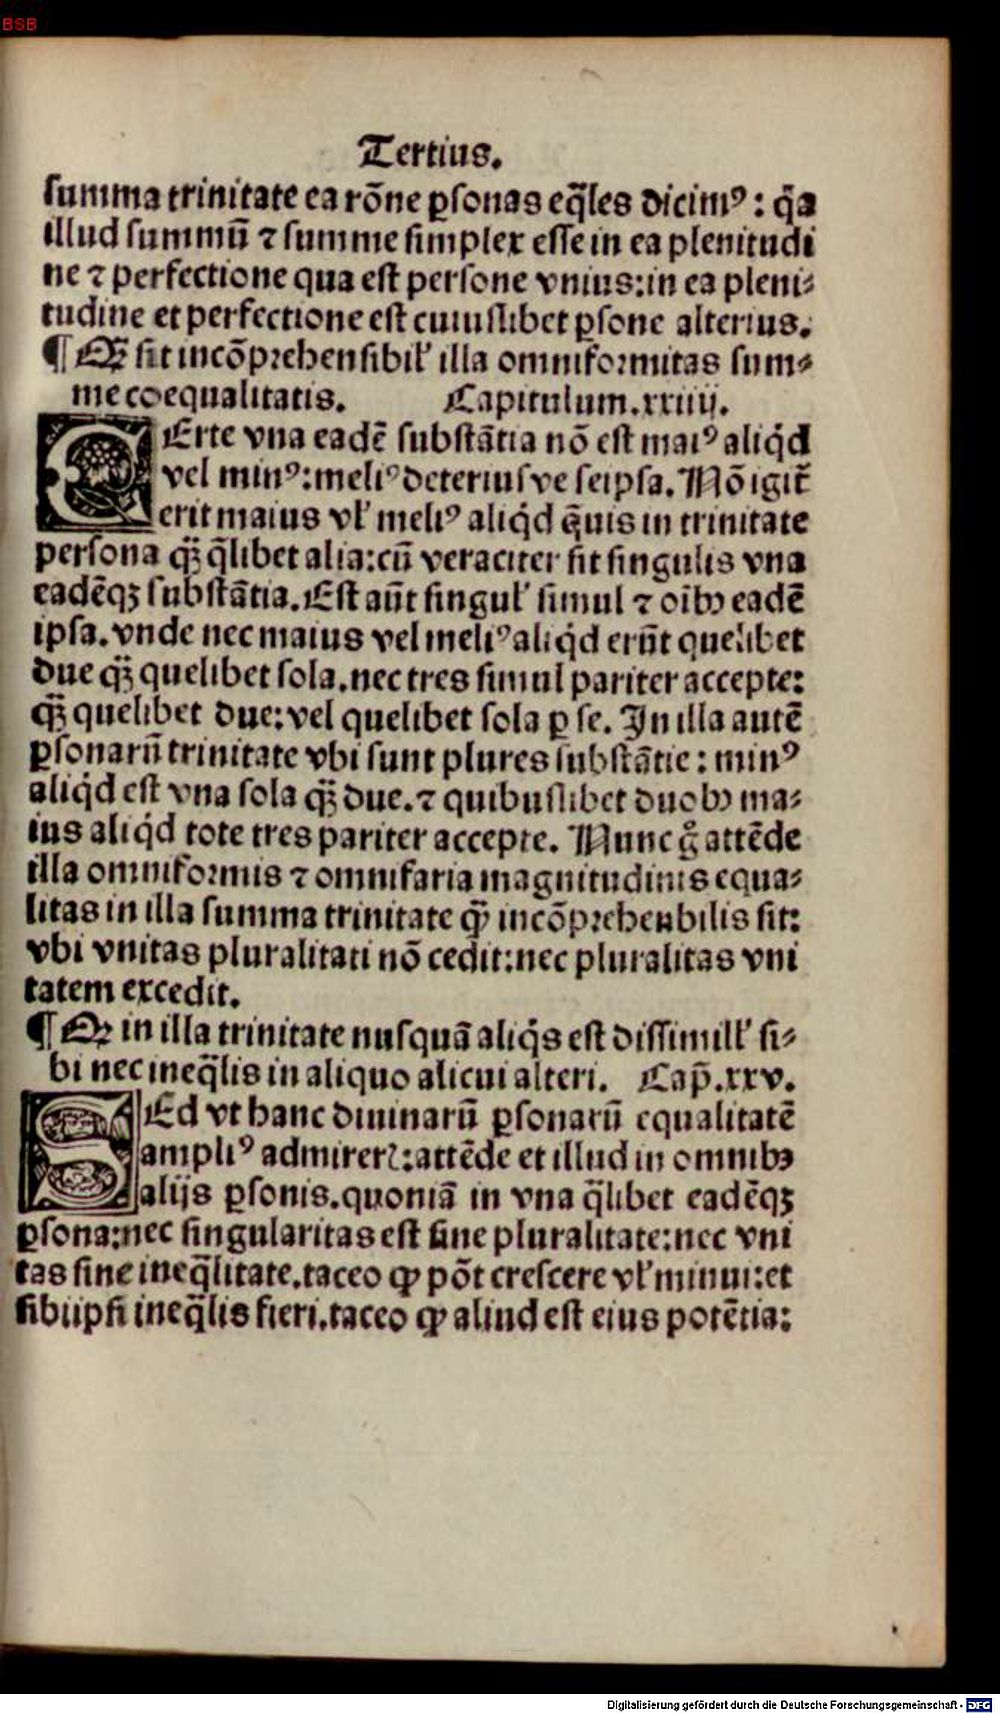 BSB
Tertius.
summa trinitate ea rõne ꝑsonas eq̃les dicimꝰ : q̃a
illud summũ ⁊ summe simplex esse in ea plenitudi
ne ⁊ perfectione qua est persone vnius:in ea pleni⸗
tudine et perfectione est cuiuslibet ꝑsone alterius.
¶ Qꝫ sit incõprehensibil' illa omniformitas sum⸗
me coequalitatis. Capitulum.xxiiij.
CErte vna eadẽ substãtia nõ est maiꝰ aliq̇d
vel minꝰ:meliꝰ deteriusve seipsa. Nõ igit̃
erit maius vl' meliꝰ aliq̇d q̃uis in trinitate
persona q̃ꝫ q̃libet alia:cũ veraciter sit singulis vna
eadẽqꝫ substãtia. Est aũt singul' simul ⁊ oĩbꝰ eadẽ
ipsa. vnde nec maius vel meliꝰ aliq̇d erũt quelibet
due q̃ꝫ quelibet sola. nec tres simul pariter accepte:
q̃ꝫ quelibet due: vel quelibet sola ꝑ se. In illa autẽ
ꝑsonarũ trinitate vbi sunt plures substãtie : minꝰ
aliq̇d est vna sola q̃ꝫ due. ⁊ quibuslibet duobꝰ ma⸗
ius aliq̇d tote tres pariter accepte. Nunc g̊ attẽde
illa omniformis ⁊ omnifaria magnitudinis equa⸗
litas in illa summa trinitate q̃ꝫ incõprehensibilis sit:
vbi vnitas pluralitati nõ cedit:nec pluralitas vni
tatem excedit.
¶ Qꝫ in illa trinitate nusquã aliq̇s est dissimill' si⸗
bi nec ineq̃lis in aliquo alicui alteri. Cap̃.xxv.
SEd vt hanc diuinarũ ꝑsonarũ equalitatẽ
ampliꝰ admirerꝭ:attẽde et illud in omnibꝰ
alijs ꝑsonis.quoniã in vna q̃libet eadẽqꝫ
ꝑsona:nec singularitas est sine pluralitate:nec vni
tas sine ineq̃litate.taceo ꝙ põt crescere vl' minui:et
sibiipsi ineq̃lis fieri.taceo ꝙ aliud est eius potẽtia:
Digitalisierung gefördert durch die Deutsche Forschungsgemeinschaft - DFG